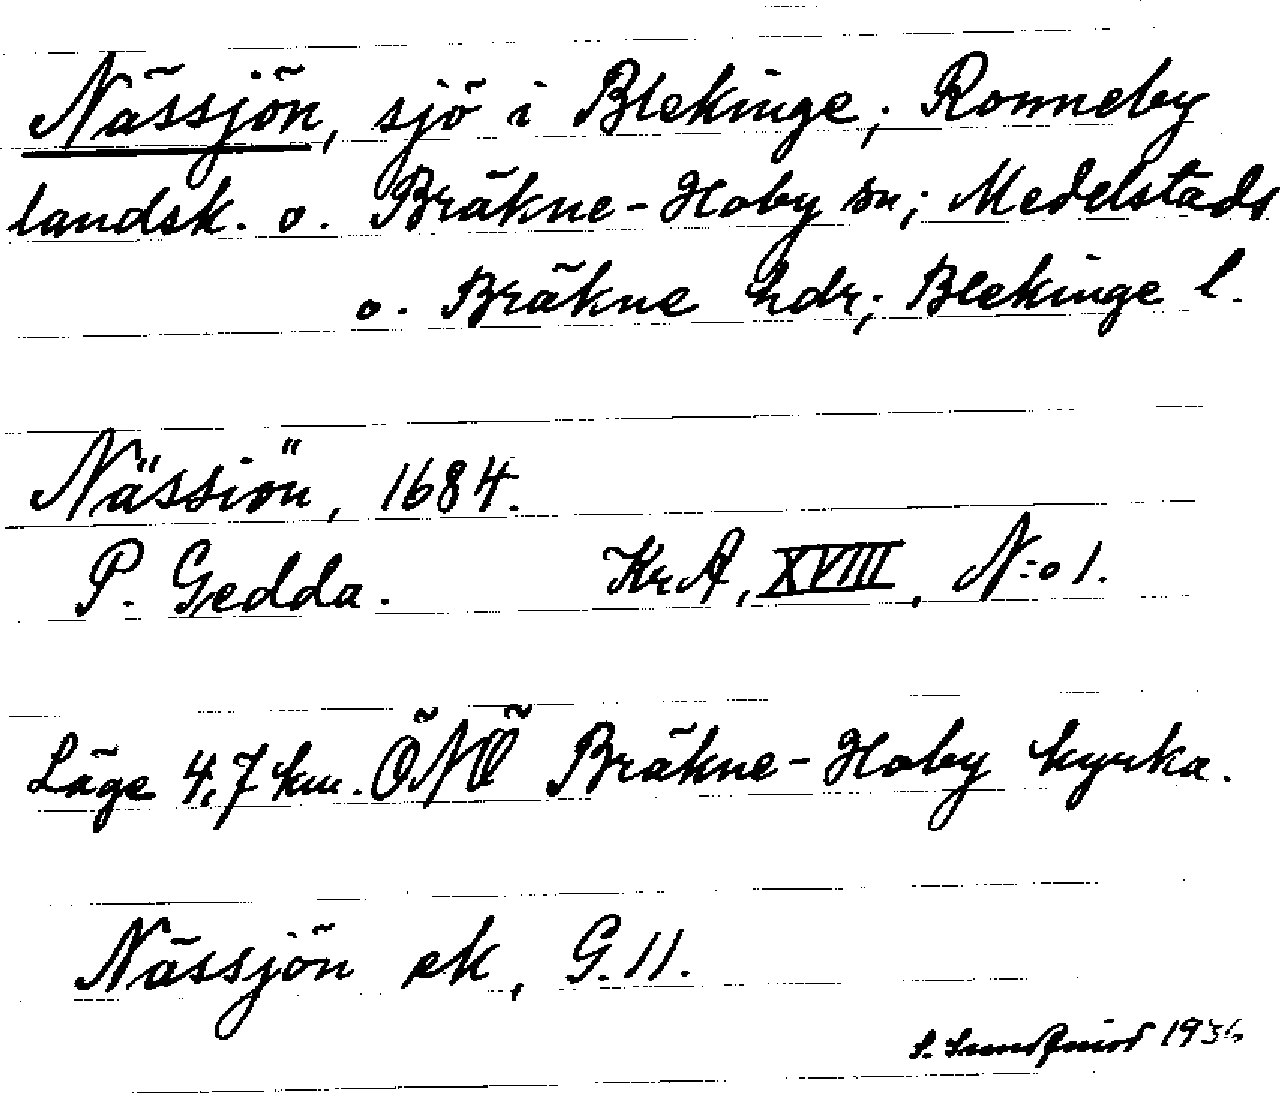 Nässjön, sjö i Blekinge; Ronneby
landsk. o. Bräkne-Hoby sn; Medelstads
o. Bräkne hdr; Blekinge l.
Nässiön, 1684.
P. Gedda. KrA, XVIII, N:o 1.
Läge 4,7 km. ÖNÖ Bräkne-Hoby kyrka.
Nässjön ek, G.11.
S. 1936